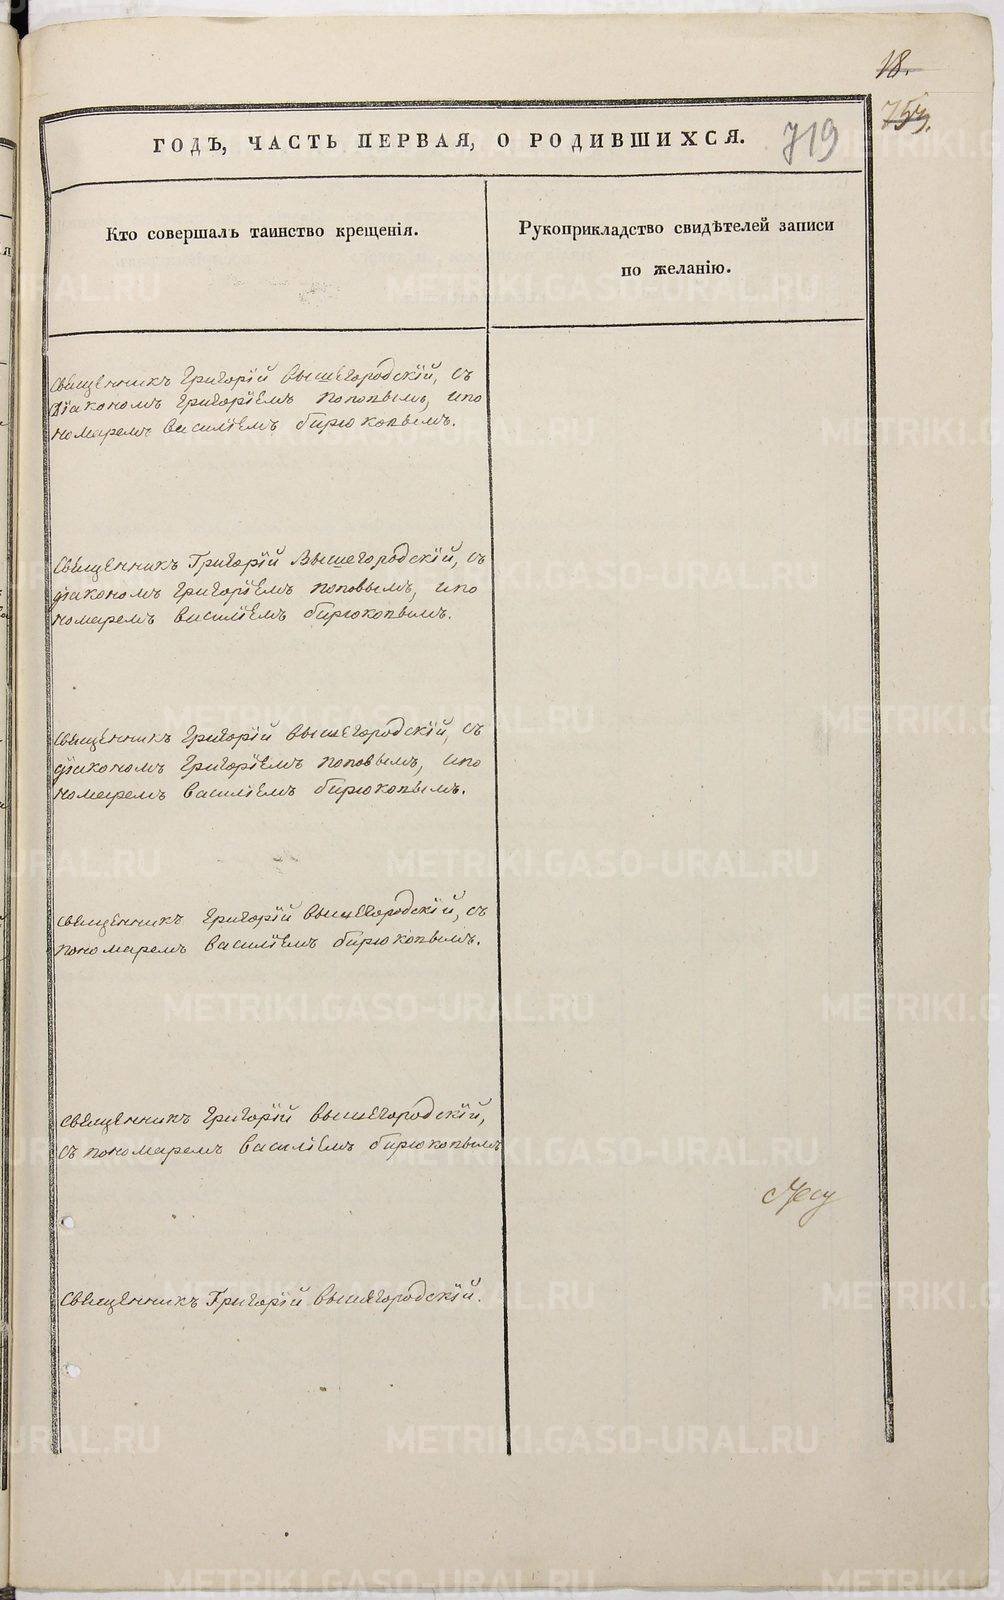 18.
753.
ГОДЪ, ЧАСТЬ ПЕРВАЯ, О РОДИВШИХСЯ.
719
Кто совершалъ таинство крещенія.
Рукоприкладство свидѣтелей записи
по желанію.
Священникъ Григорій Вышегородскій, съ
діакономъ Григоріемъ Поповымъ, и по
номаремъ Василіемъ Бирюковымъ.
Священникъ Григорій Вышегородскій, съ
діакономъ Григоріемъ Поповымъ, и по
номаремъ Василіемъ Бирюковымъ.
Священникъ Григорій Вышегородскій, съ
діакономъ Григоріемъ Поповымъ, и по
номаремъ Василіемъ Бирюковымъ.
Священникъ Григорій Вышегородскій, съ
пономаремъ Василіемъ Бирюковымъ.
Священникъ Григорій Вышегородскій,
съ пономаремъ Василіемъ Бирюковымъ
Священникъ Григорій Вышегородскій.
METRIKI.GASO-URAL.RU